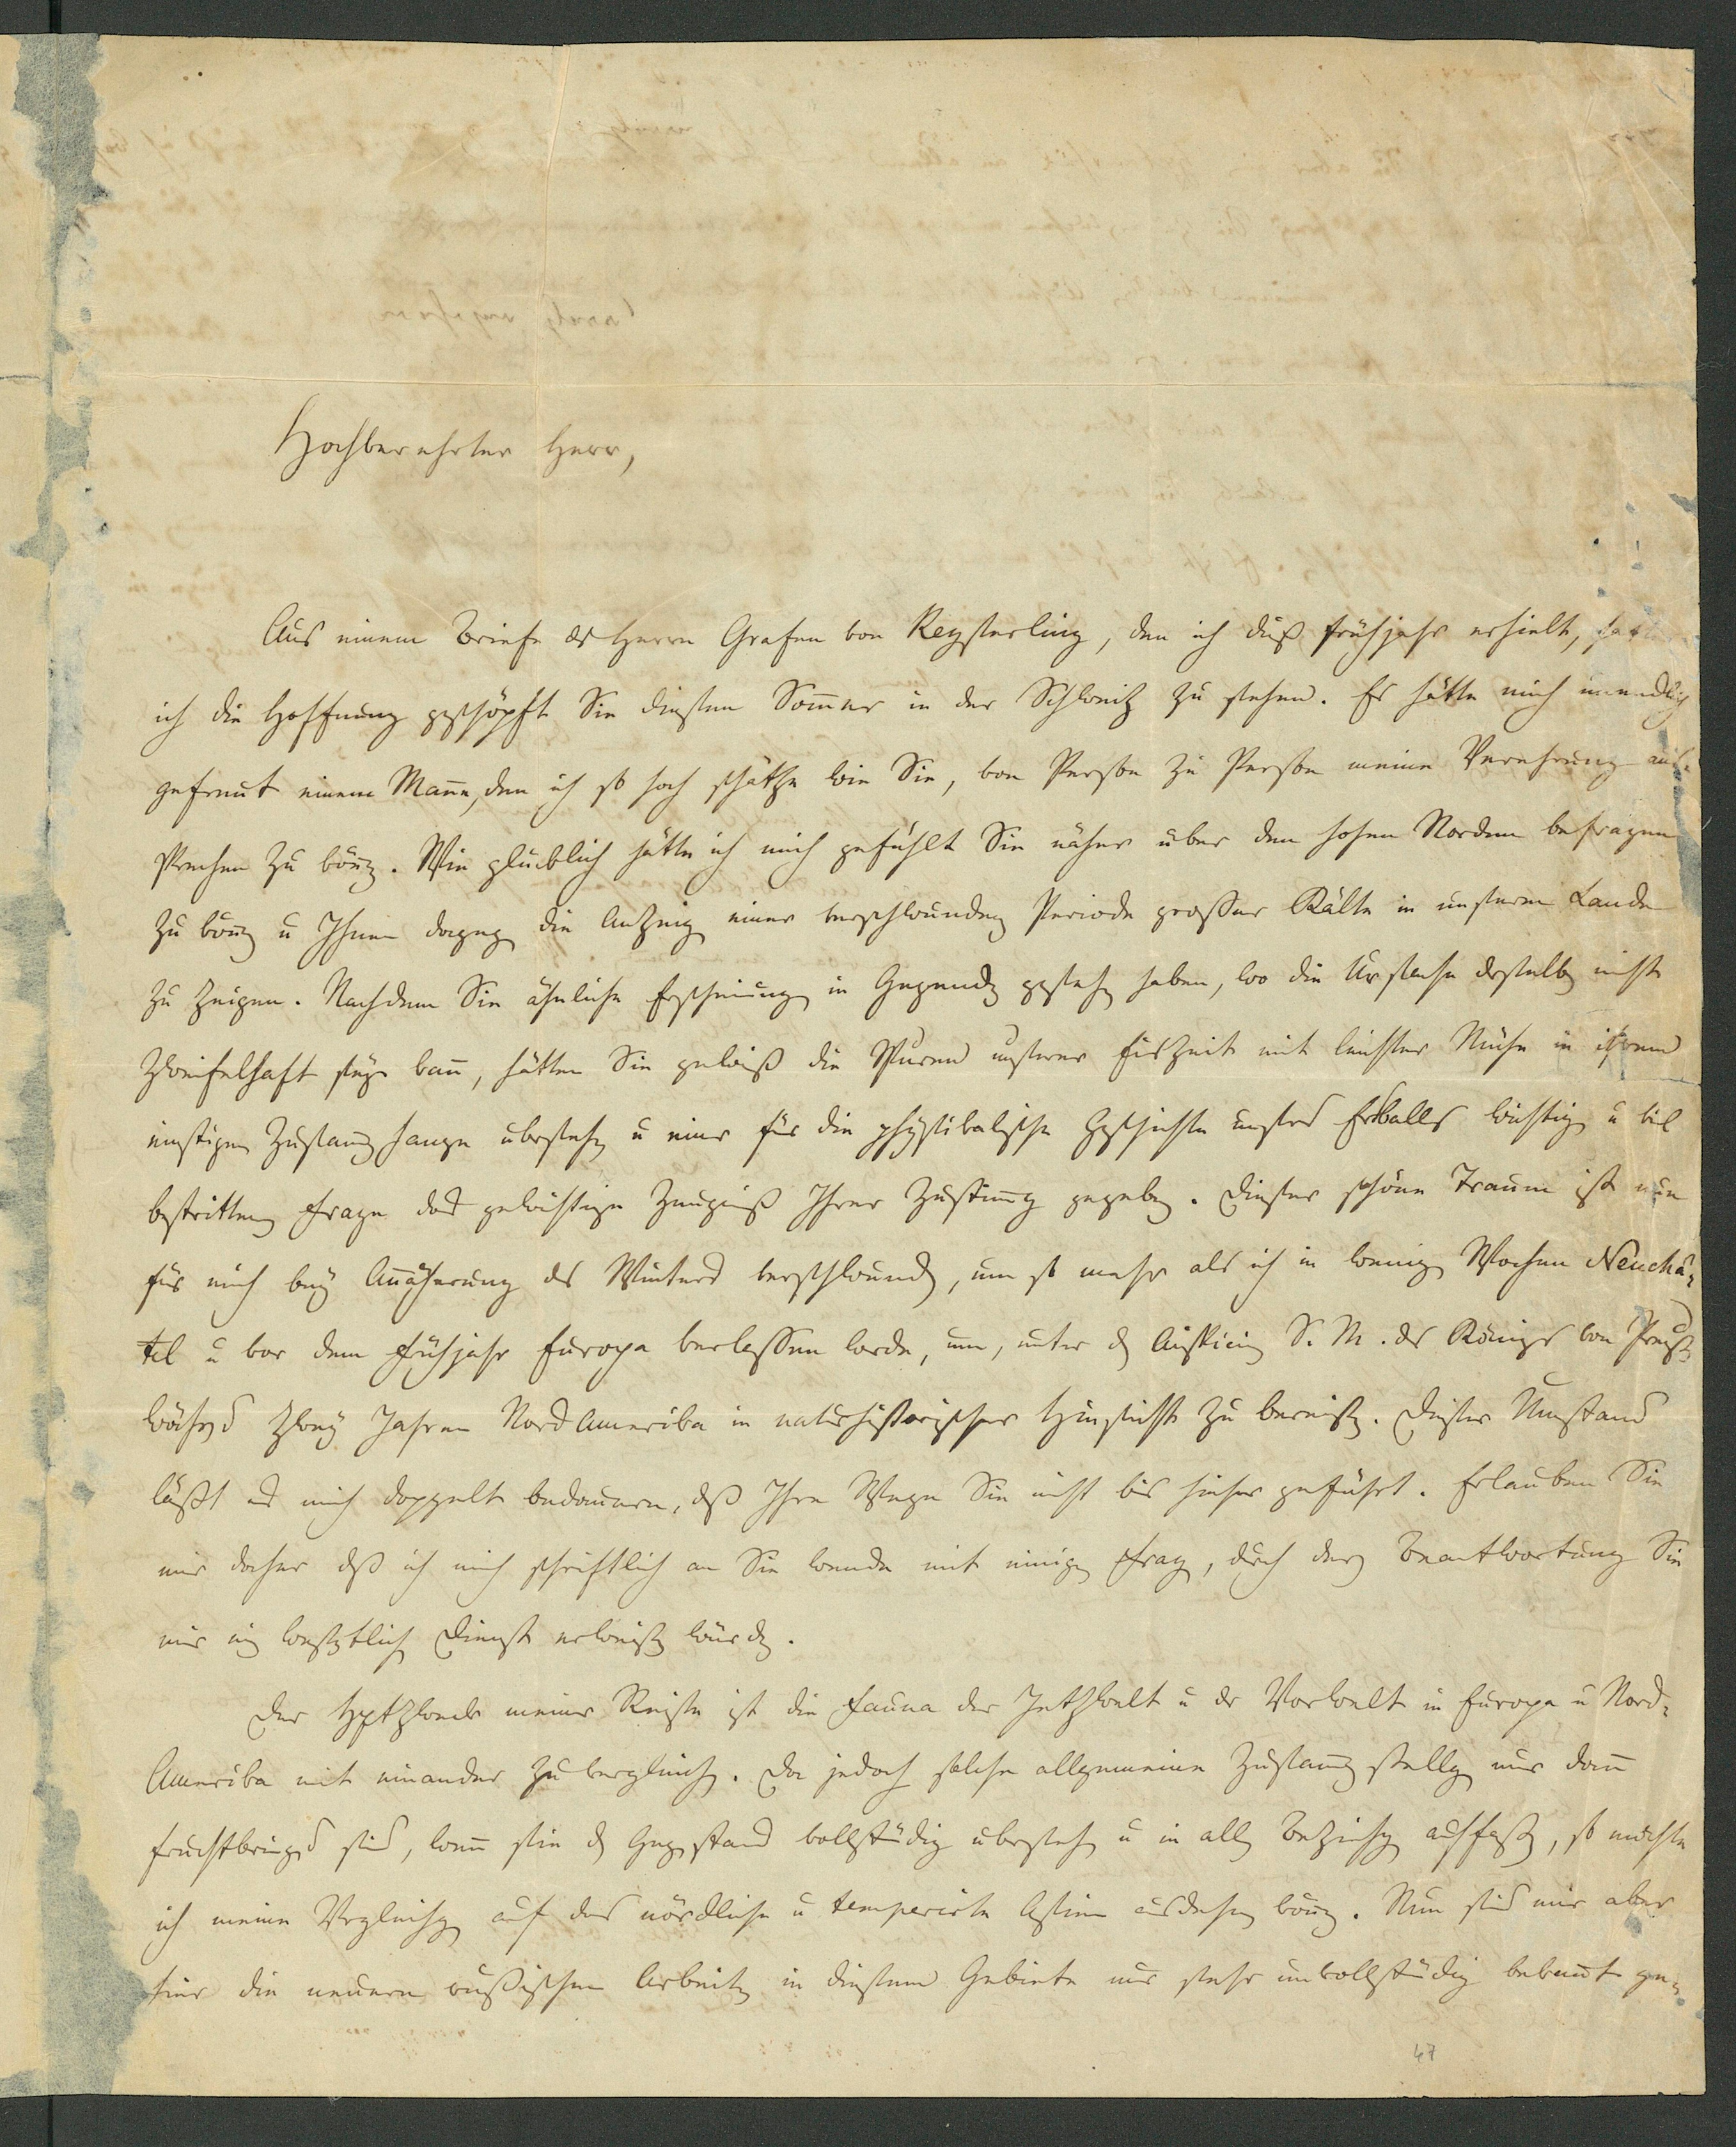 Hochverehrter Herr,
Aus einem Briefe des Herrn Grafen von Keyserling, den ich diess Frühjahr erhielt, hatte
ich die Hoffnung geschöpft Sie diesen Sommer in der Schweitz zu sehen. Es hätte mich unendlich
gefreut einem Manne, den ich so hoch schätze wie Sie, von Person zu Person meine Verehrung aus-
sprechen zu können. Wie glücklich hätte ich mich gefühlt Sie näher über den hohen Norden befragen
zu können u Ihnen dagegen die Anzeigen einer verschwundenen Periode grosser Kälte in unserem Lande
zu zeigen. Nachdem Sie ähnliche Erscheinungen in Gegenden gesehen haben, wo die Ursache derselben nicht
zweifelhaft seyn kann, hätten Sie gewiss die Spuren unserer Eiszeit mit leichter Mühe in ihrem
einstigen Zusammenhange übersehen u einer für die physikalische Geschichte unseres Erdballs wichtigen u viel
bestrittenen Frage das gewichtige Zeugniss Ihrer Zustimmung gegeben. Dieser schöne Traum ist nun
für mich bey Annäherung des Winters verschwunden, um so mehr als ich in wenigen Wochen Neuchâ-
tel u vor dem Frühjahr Europa verlassen werde, um, unter den Auspicien S. M. des Königs von Preussen
während zwey Jahren Nord Amerika in naturhistorischer Hinsicht zu bereisen. Dieser Umstand
lässt es mich doppelt bedauern, dass Ihre Wege Sie nicht bis hieher geführt. Erlauben Sie
mir daher dass ich mich schriftlich an Sie wende mit einigen Fragen, durch deren Beantwortung Sie
mir einen wesentlichen Dienst erweisen würden.
Der Hptzweck meiner Reise ist die Fauna der Jetztwelt u der Vorwelt in Europa u Nord-
Amerika mit einander zu vergleichen. Da jedoch solche allgemeine Zusammenstellungen nur dann
fruchtbringend sind, wenn sie den Gegenstand vollständig übersehen u in allen Beziehungen auffassen, so möchte
ich meine Vergleichungen auf das nördliche u temperirte Asien ausdehnen können. Nun sind mir aber
hier die neuern russischen Arbeiten in diesem Gebiete nur sehr unvollständig bekannt ge-
47